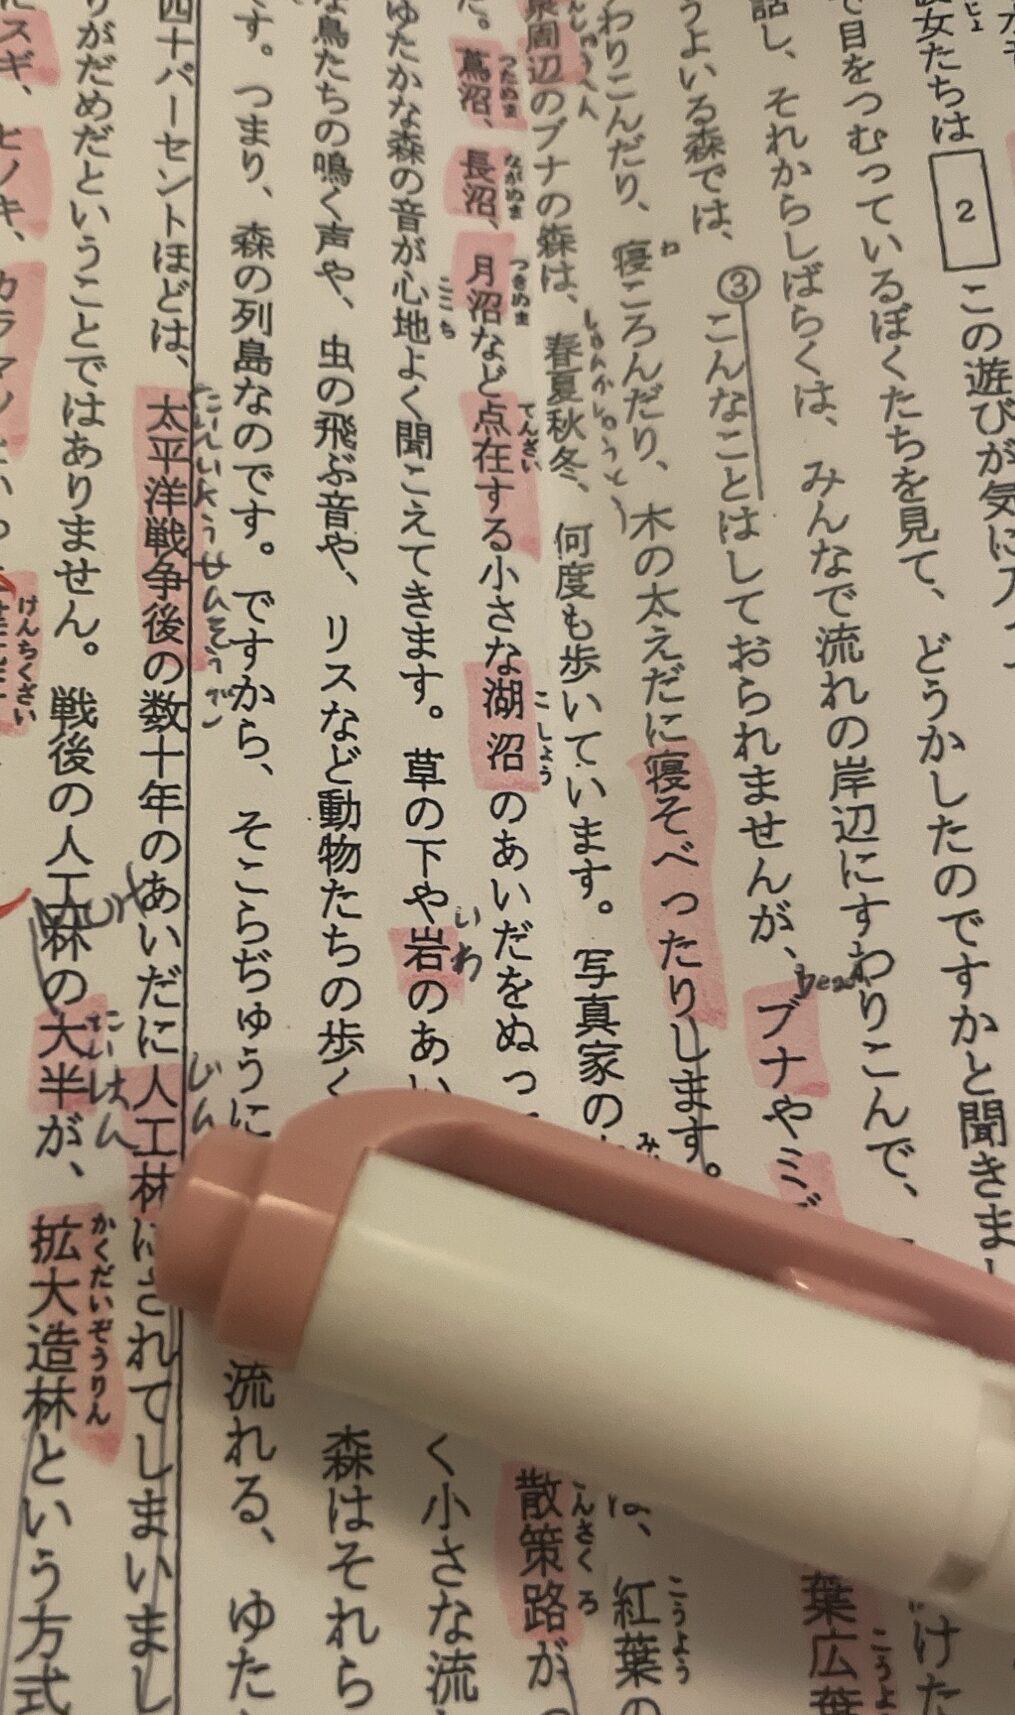 彼女たちは 2 この遊びが気に入っ
で目をつむっているぼくたちを見て、どうかしたのですかと聞きまし
話し、それからしばらくは、みんなで流れの岸辺にすわりこんで、
うよいる森では、③こんなことはしておられませんが、ブナやミズ
葉広葉
わりこんだり、寝ころんだり、木の太えだに寝そべったりします。
は、紅葉の
泉周辺のブナの森は、春夏秋冬、何度も歩いています。写真家の
散策路が
た。蔦沼、長沼、月沼など点在する小さな湖沼のあいだをぬっ
く小さな流
ゆたかな森の音が心地よく聞こえてきます。草の下や岩のあい
森はそれら
な鳥たちの鳴く声や、虫の飛ぶ音や、リスなど動物たちの歩く
す。つまり、森の列島なのです。ですから、そこらぢゅうに
流れる、ゆた
四十パーセントほどは、太平洋戦争後の数十年のあいだに人工林にされてしまいまし
りがだめだということではありません。戦後の人工林の大半が、拡大造林という方式
スギ、ヒノキ、カラマツ